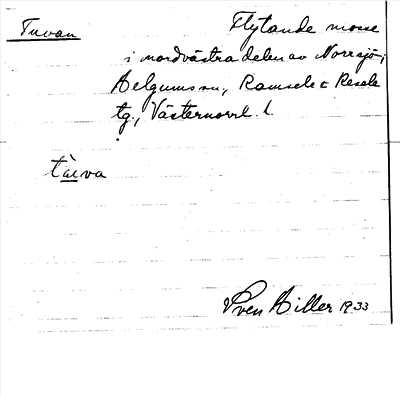 Tuvan
Flytande mosse
i nordvästra delen av Norrsjö,
Helgums sn, Ramsele o Resele
tg., Västernorrl. l.
tu̲va
Sven Hiller 1933